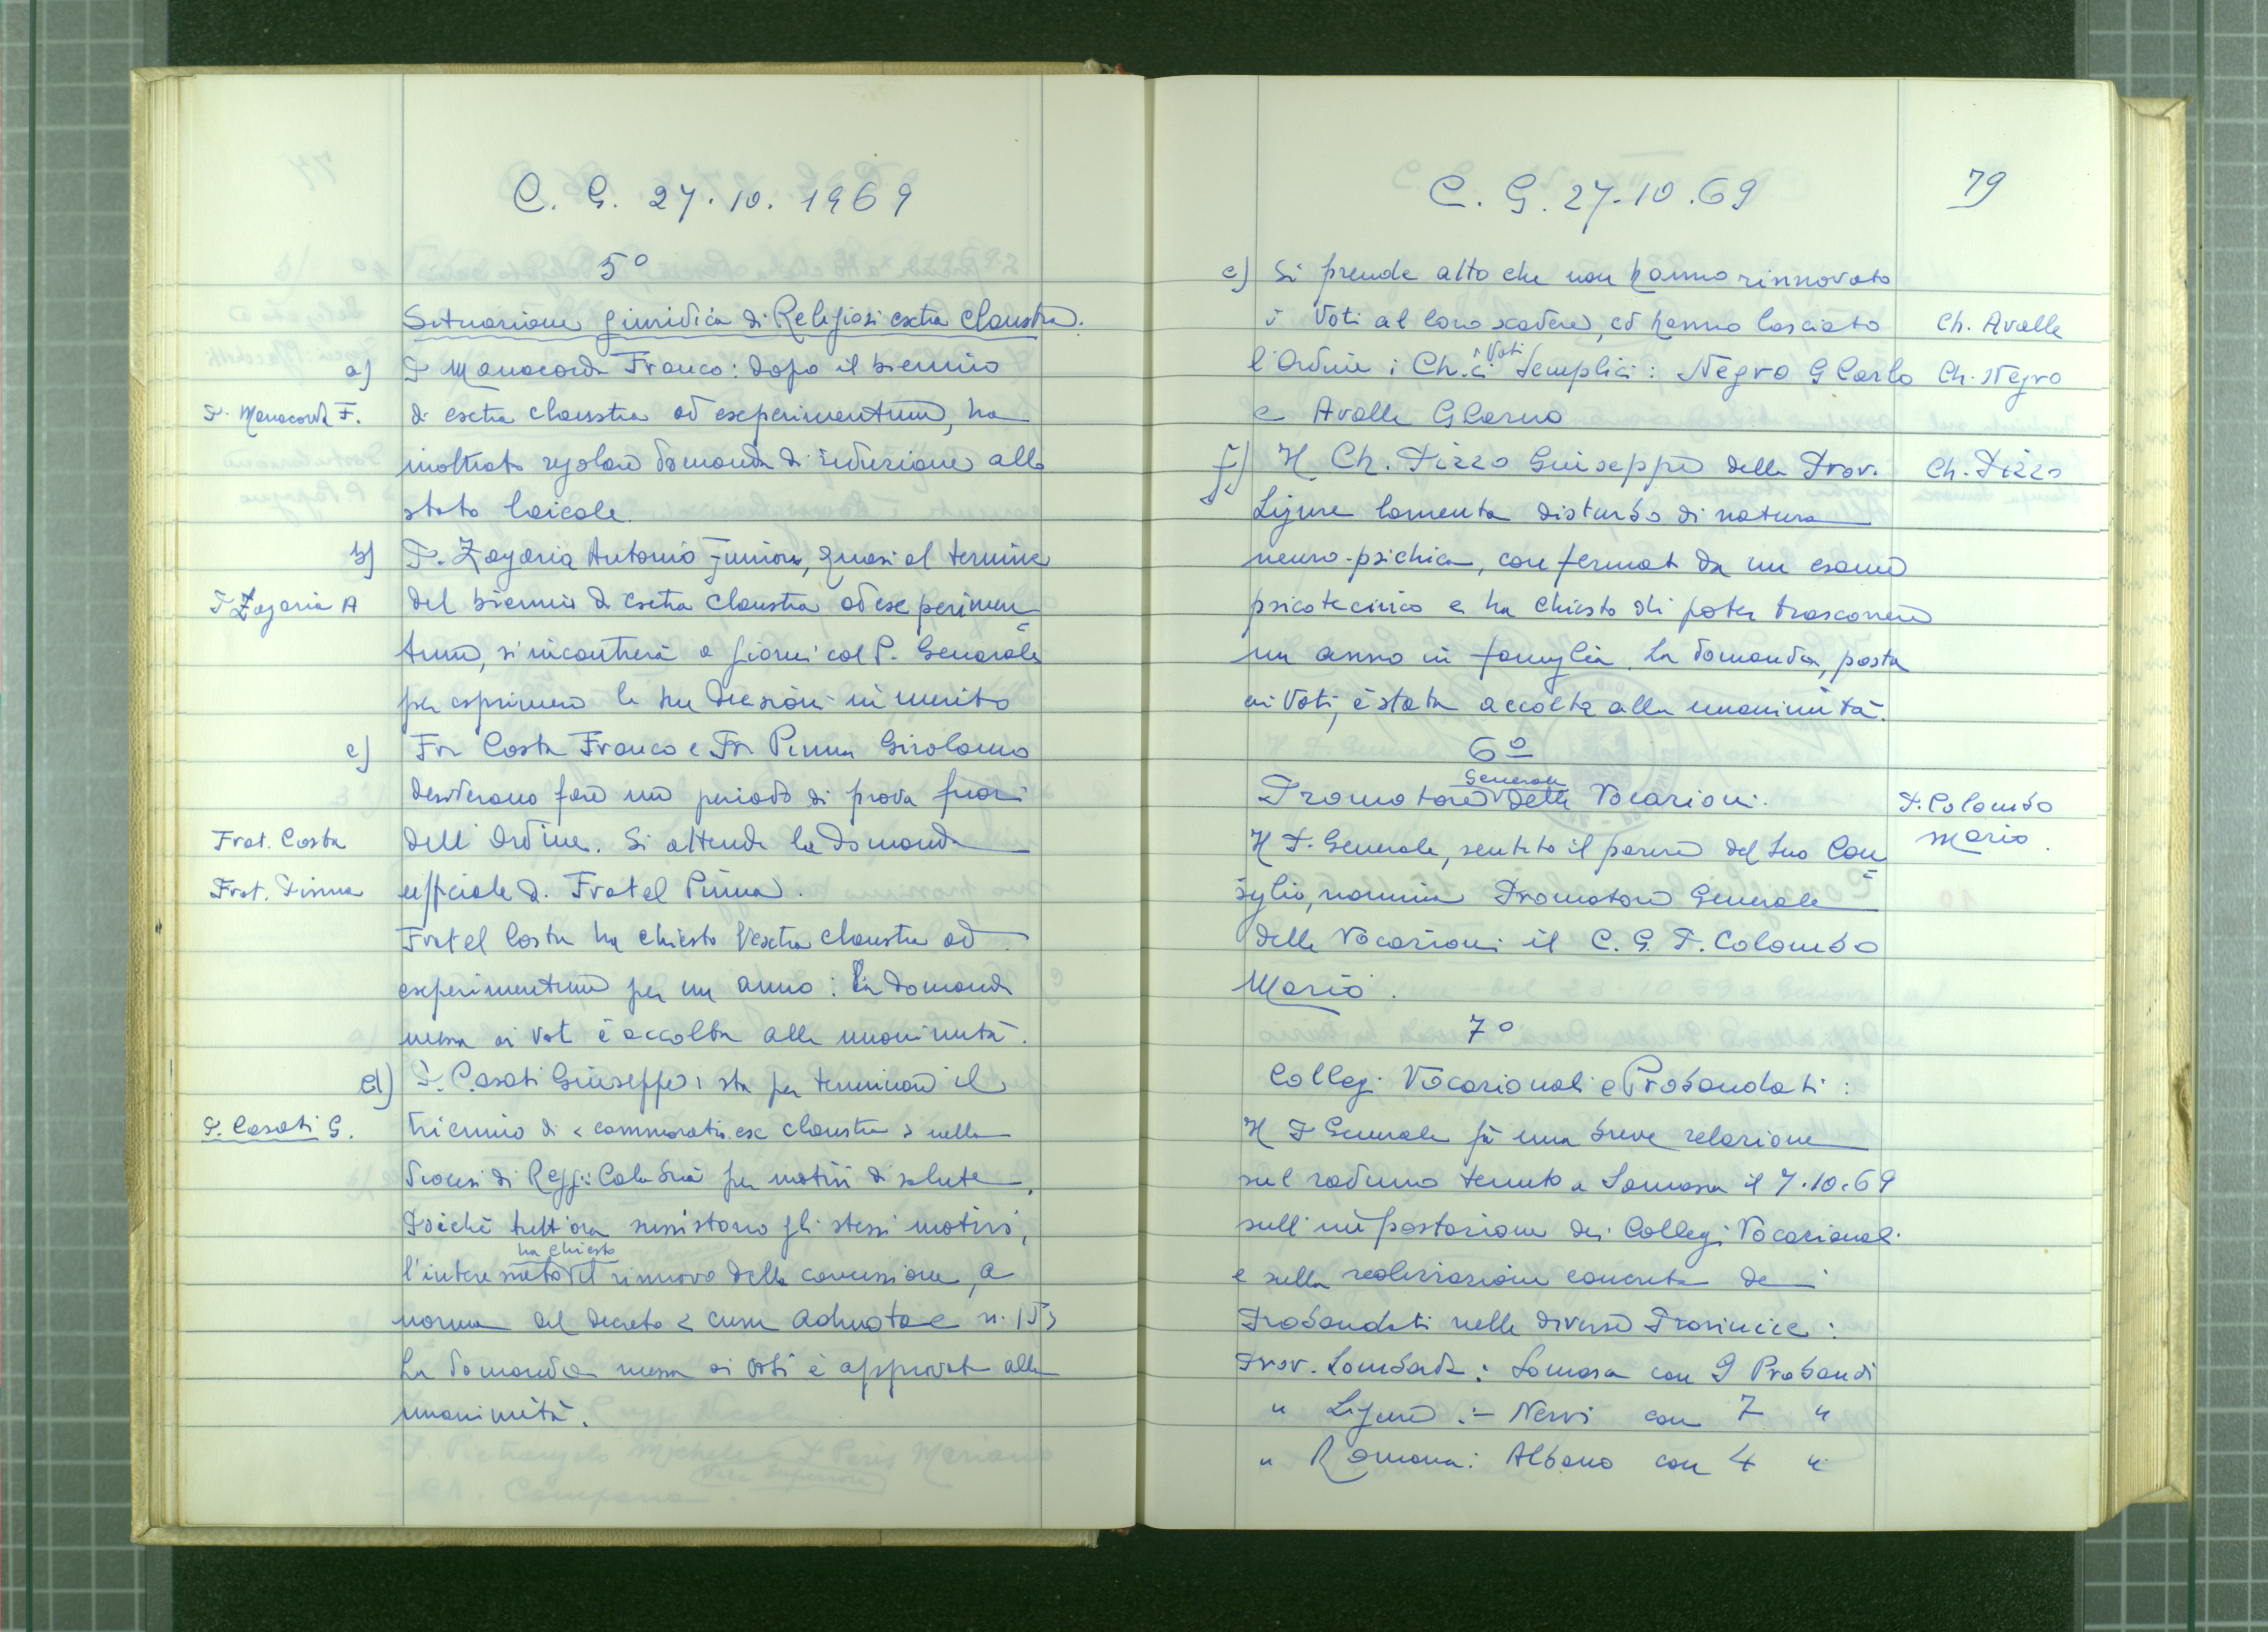 C. G. 27.10.1969
5°
Situazione giuridica di Religiosi extra claustra.
a) P. Manacorda Franco: dopo il biennio
P. Manacorda F.
di extra claustra ad experimentum, ha
inoltrato regolare domanda di riduzione allo
stato laicale.
b) P. Zagaria Antonio junior, quasi al termine
P. Zagaria A
del biennio di extra claustra ad experimen=
tum, si incontrerà a giorni col P. Generale
per esprimere le sue decisioni in merito
c) Fr. Costa Franco e Fr. Pinna Girolamo
desiderano fare un periodo di prova fuori
Frat. Costa
dell'Ordine. Si attende la domanda
Frat. Pinna
ufficiale di Fratel Pinna.
Fratel Costa ha chiesto l'extra claustra ad
experimentum per un anno: la domanda
messa ai voti è accolta alla unanimità.
d) P. Casati Giuseppe: sta per terminare il
P. Casati G.
triennio di < commoratio ex claustra > nella
diocesi di Reggio Calabria per motivi di salute.
Poichè tutt'ora sussistono gli stessi motivi,
ha chiesto
l'interessato il rinnovo della concessione, a
norma del decreto < cum admotae n. 15>
La domanda messa ai voti è approvata alla
unanimità.
C. G. 27.10.69
79
e) Si prende atto che non hanno rinnovato
i Voti al loro scadere, ed hanno lasciato
Ch. Avalle
l'Ordine i Ch.ci i Voti Semplici: Negro G Carlo
Ch. Negro
e Avalle G Carlo
f) Il Ch. Pizzo Giuseppe della Prov.
Ch. Pizzo
Ligure lamenta disturbo di natura
neuro-psichica, confermat da un esame
psicotecnico e ha chiesto di poter trascorrere
un anno in famiglia. La domanda, posta
ai Voti, è stata accolta alla unanimità.
6°
Generale
Promotore delle Vocazioni.
P. Colombo
Mario.
Il P. Generale, sentito il parere del Suo Con=
siglio, nomina Promotore Generale
delle Vocazioni il C. G. P. Colombo
Mario.
7°
Collegi Vocazionali e Probandati:
Il P Generale fà una breve relazione
sul raduno tenuto a Somasca il 7.10.69
sull'impostazione dei Collegi Vocazionali
e sulla realizzazione concreta dei
Probandati nelle diverse Provincie:
Prov. Lombarda: Somasca con 9 Probandi
" Ligure :- Nervi con 7 "
" Romana: Albano con 4 "